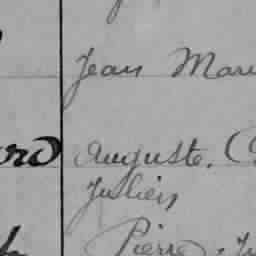 Jean Mari
Auguste. (
Julien
Pierre, Ju